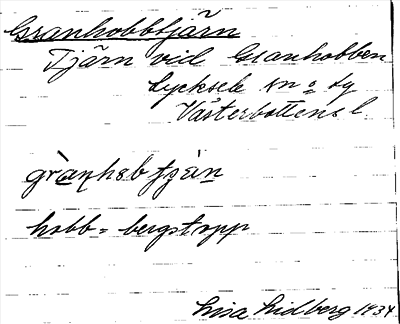 Granhobbtjärn
Tjärn vid Granhobben
Lycksele sn o. tg
Västerbottens l.
grànhob tjàn
hobb = bergstopp
Lisa Lidberg 1934